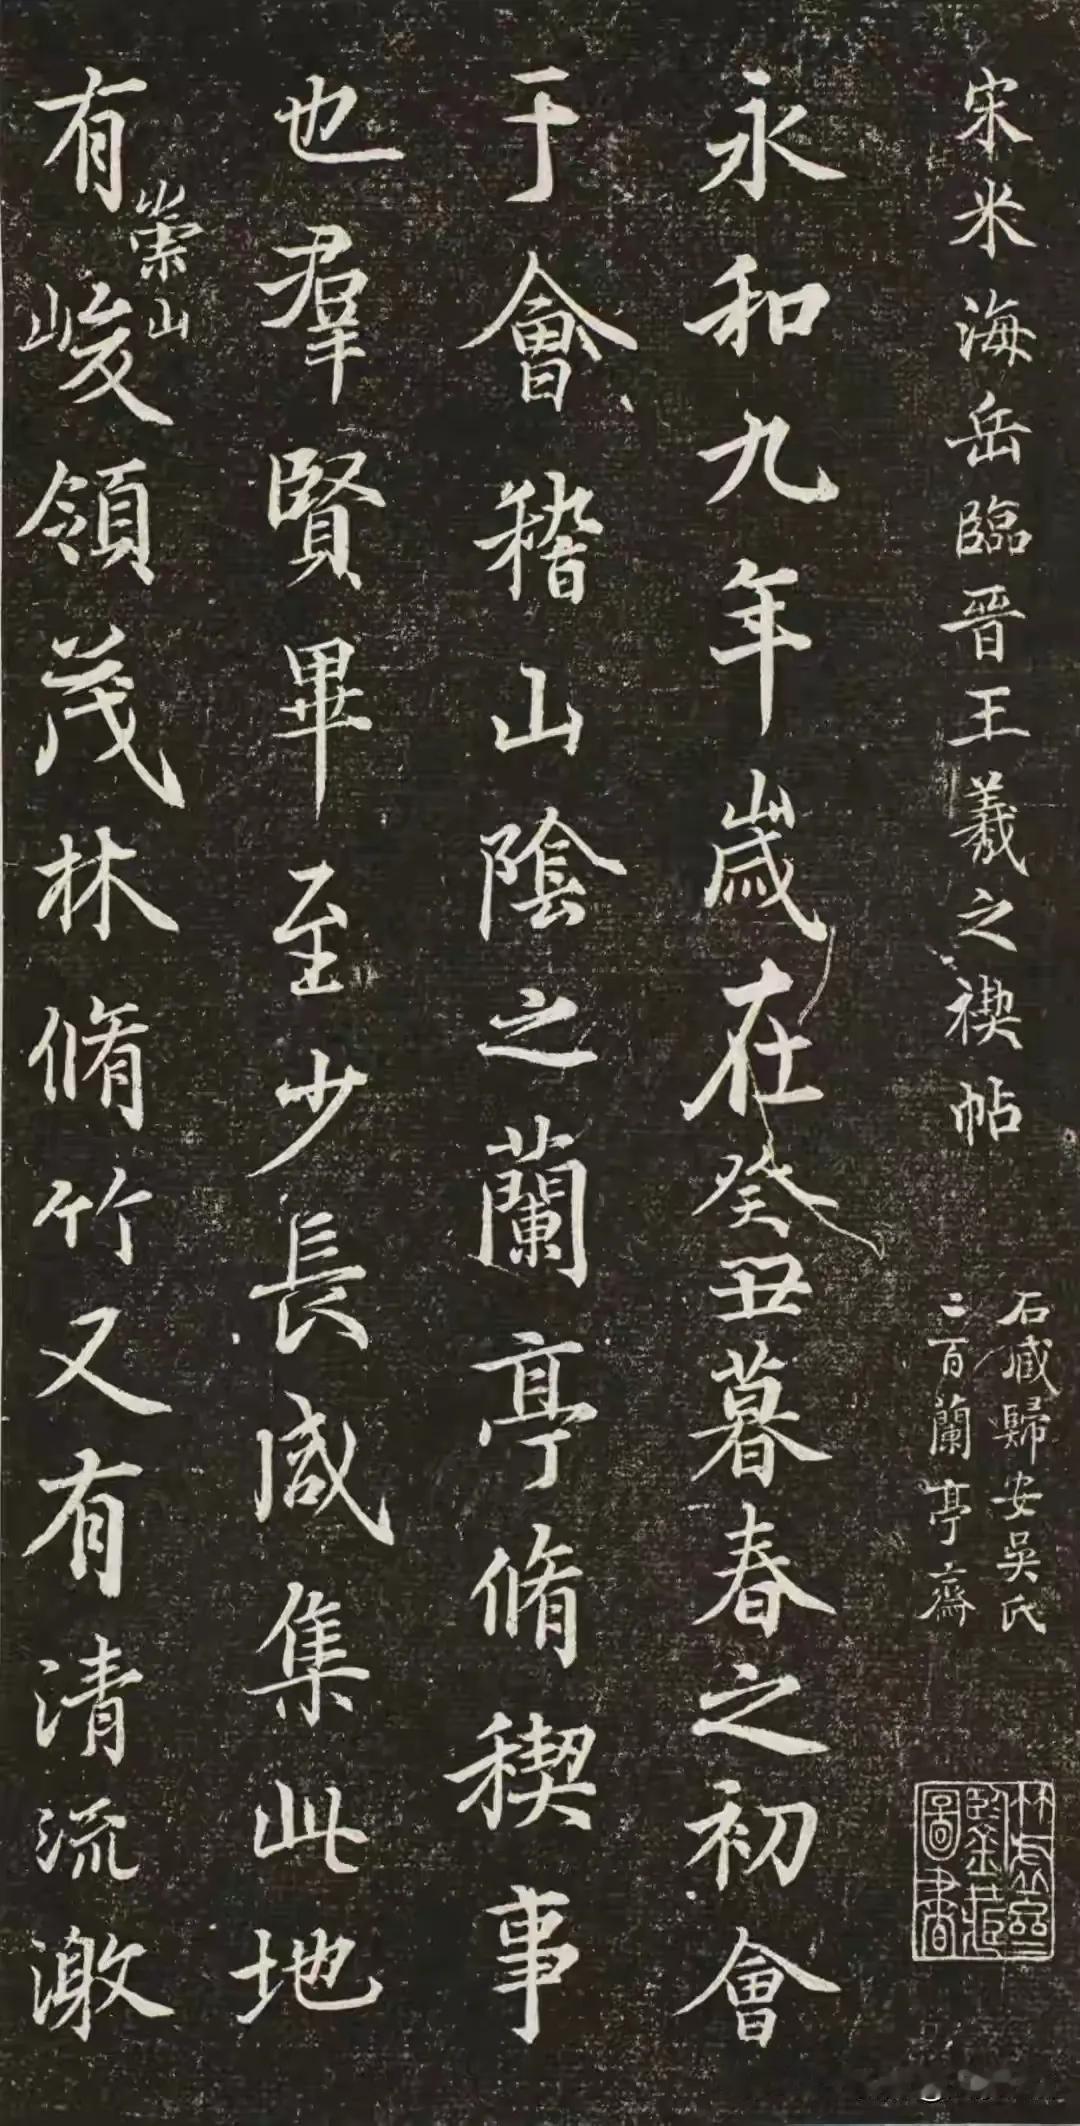 宋米海岳臨晉王羲之禊帖
石藏歸安吳氏
二百蘭亭齋
永和九年歲在癸丑暮春之初會
于會稽山陰之蘭亭脩稧事
也羣賢畢至少長咸集此地
有
崇山
峻領茂林脩竹又有清流激